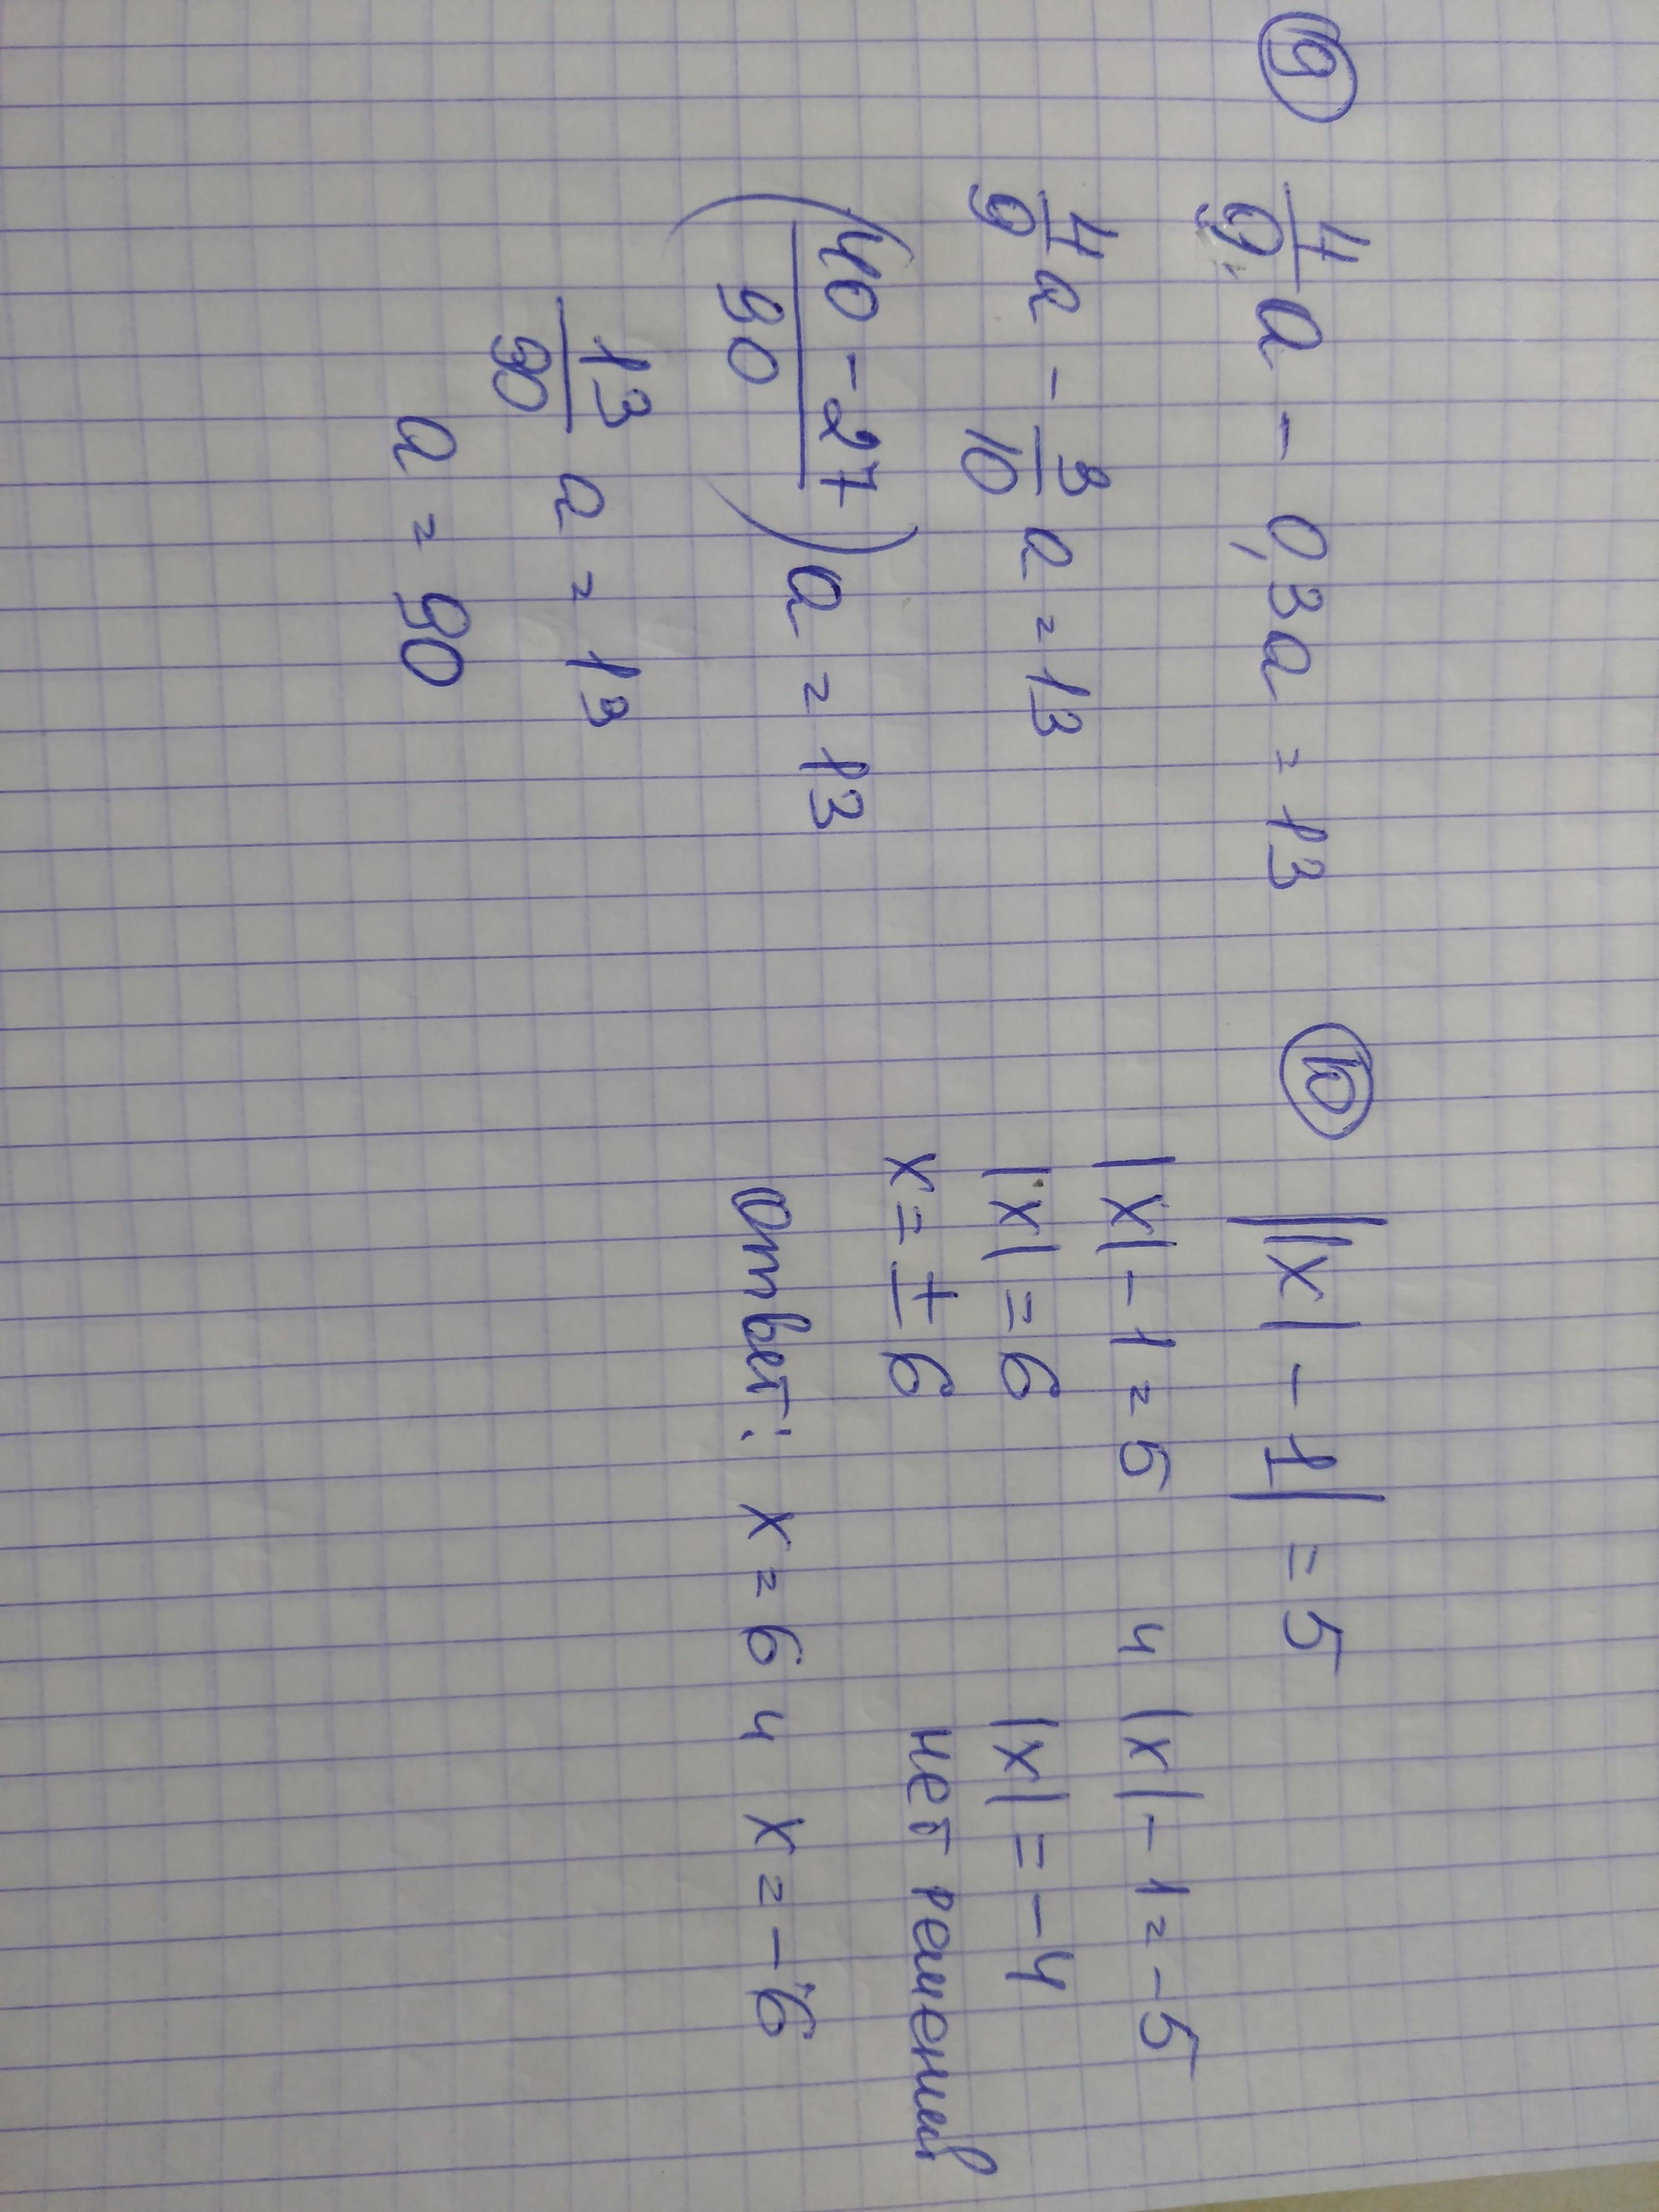 9
4/9 a - 0,3a = 13
4/9 a - 3/10 a = 13
(40 - 27 / 90) a = 13
13/90 a = 13
a = 90
10
||x| - 1| = 5
|x| - 1 = 5 и |x| - 1 = -5
|x| = 6 |x| = -4
x = ± 6 нет решений
Ответ: x = 6 и x = -6